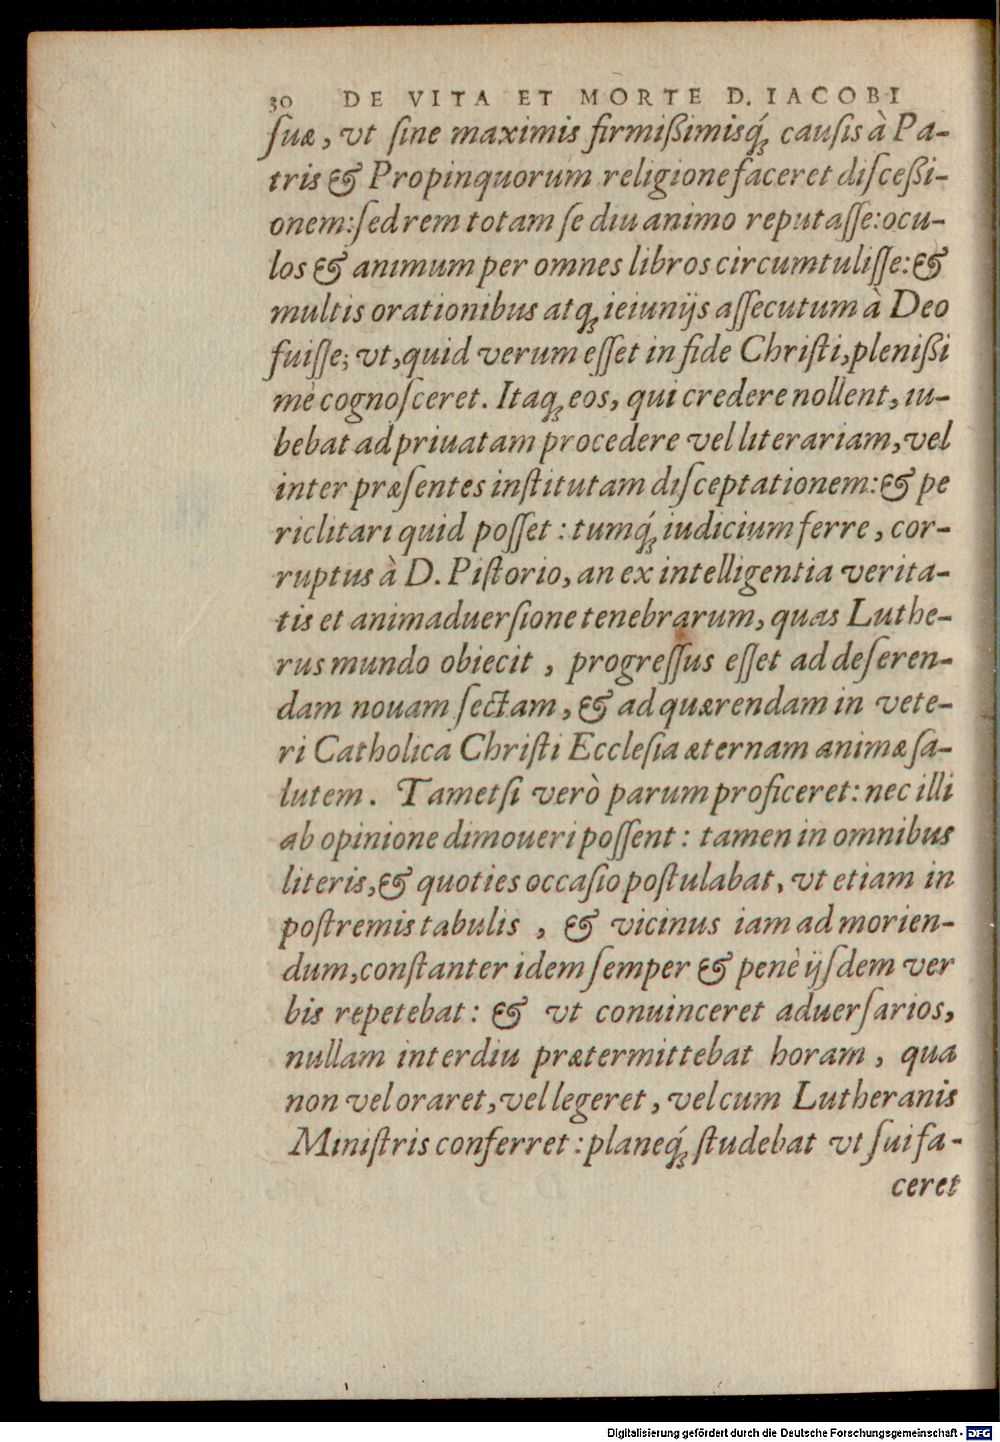 30 DE VITA ET MORTE D. IACOBI
ſuæ, vt ſine maximis firmißimisq́ꝫ cauſis à Pa-
tris & Propinquorum religione faceret diſceßi-
onem: ſed rem totam ſe diu animo reputaſſe: ocu-
los & animum per omnes libros circumtuliſſe: &
multis orationibus atqꝫ ieiunijs aſſecutum à Deo
fuiſſe; vt, quid verum eſſet in fide Chriſti, plenißi
mè cognoſceret. Itaqꝫ eos, qui credere nollent, iu-
bebat ad priuatam procedere vel literariam, vel
inter præſentes inſtitutam diſceptationem: & pe
riclitari quid poſſet: tumq́ꝫ iudicium ferre, cor-
ruptus à D. Piſtorio, an ex intelligentia verita-
tis et animaduerſione tenebrarum, quas Luthe-
rus mundo obiecit, progreſſus eſſet ad deſeren-
dam nouam ſectam, & ad quærendam in vete-
ri Catholica Chriſti Eccleſia æternam animæ ſa-
lutem. Tametſi verò parum proficeret: nec illi
ab opinione dimoueri poſſent: tamen in omnibus
literis, & quoties occaſio poſtulabat, vt etiam in
poſtremis tabulis, & vicinus iam ad morien-
dum, conſtanter idem ſemper & penè ijſdem ver
bis repetebat: & vt conuinceret aduerſarios,
nullam interdiu prætermittebat horam, qua
non vel oraret, vel legeret, vel cum Lutheranis
Miniſtris conferret: planeq́ꝫ ſtudebat vt ſui fa-
ceret
Digitalisierung gefördert durch die Deutsche Forschungsgemeinschaft - DFG